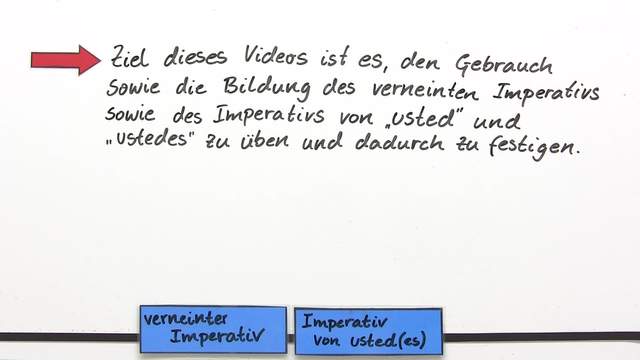 Ziel dieses Videos ist es, den Gebrauch
sowie die Bildung des verneinten Imperativs
sowie des Imperativs von „usted" und
„ustedes" zu üben und dadurch zu festigen.
verneinter
Imperativ
Imperativ
von usted(es)